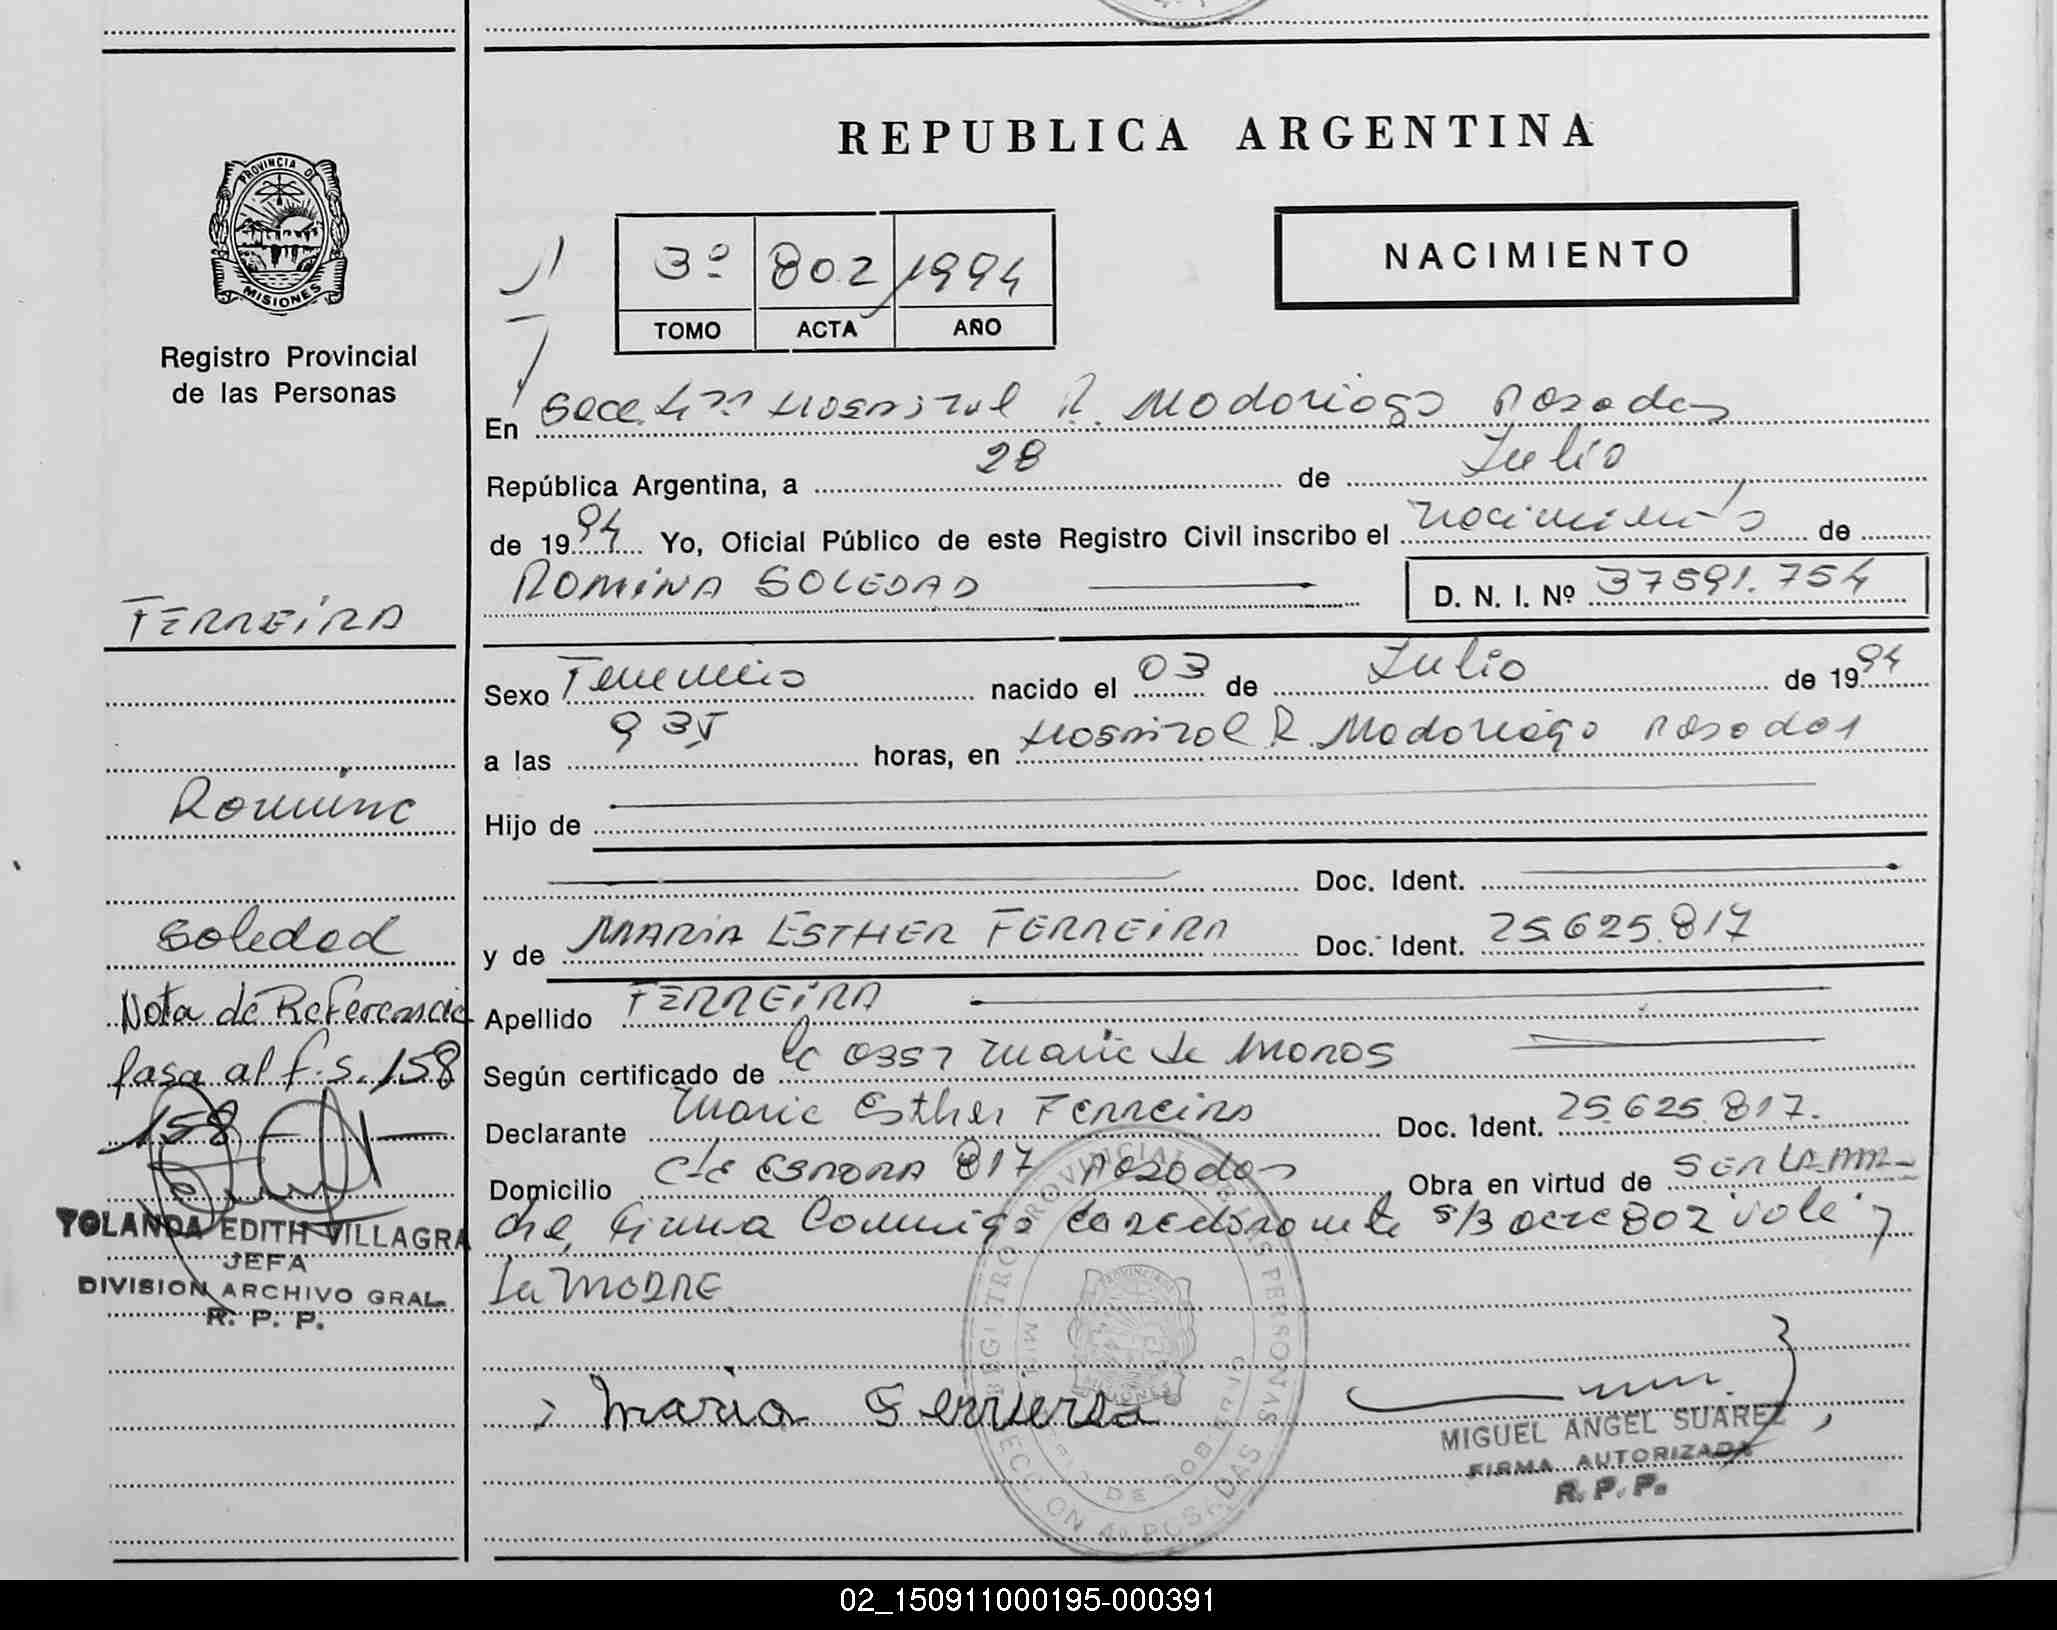 REPUBLICA ARGENTINA
PROVINCIA DE
MISIONES
Registro Provincial
de las Personas
3º 802 1994
TOMO ACTA AÑO
NACIMIENTO
En Secc 4ta Hospital R. Madariaga Posadas
República Argentina, a 28 de Julio
de 1994 Yo, Oficial Público de este Registro Civil inscribo el nacimiento de
ROMINA SOLEDAD D. N. I. Nº 37591.754
FERREIRA
Romina
Soledad
Nota de Referencia
Pasa al f.s. 158
158
YOLANDA EDITH VILLAGRA
JEFA
DIVISION ARCHIVO GRAL.
R. P. P.
Sexo Femenino nacido el 03 de Julio de 1994
a las 9 35 horas, en Hospital R. Madariaga Posadas
Hijo de
Doc. Ident.
y de MARIA ESTHER FERREIRA Doc. Ident. 25.625.817
Apellido FERREIRA
Según certificado de la Obst Maria de Moros
Declarante Maria Esther Ferreira Doc. Ident. 25.625.817.
Domicilio Cle ESPORA 817 Posadas Obra en virtud de SER LA MA-
dre, Firma Conmigo S/B acta 802 vale
La MADRE
Maria Ferrierra
MIGUEL ANGEL SUAREZ
FIRMA AUTORIZADA
R. P. P.
REGISTRO PROVINCIAL DE LAS PERSONAS
02_150911000195-000391